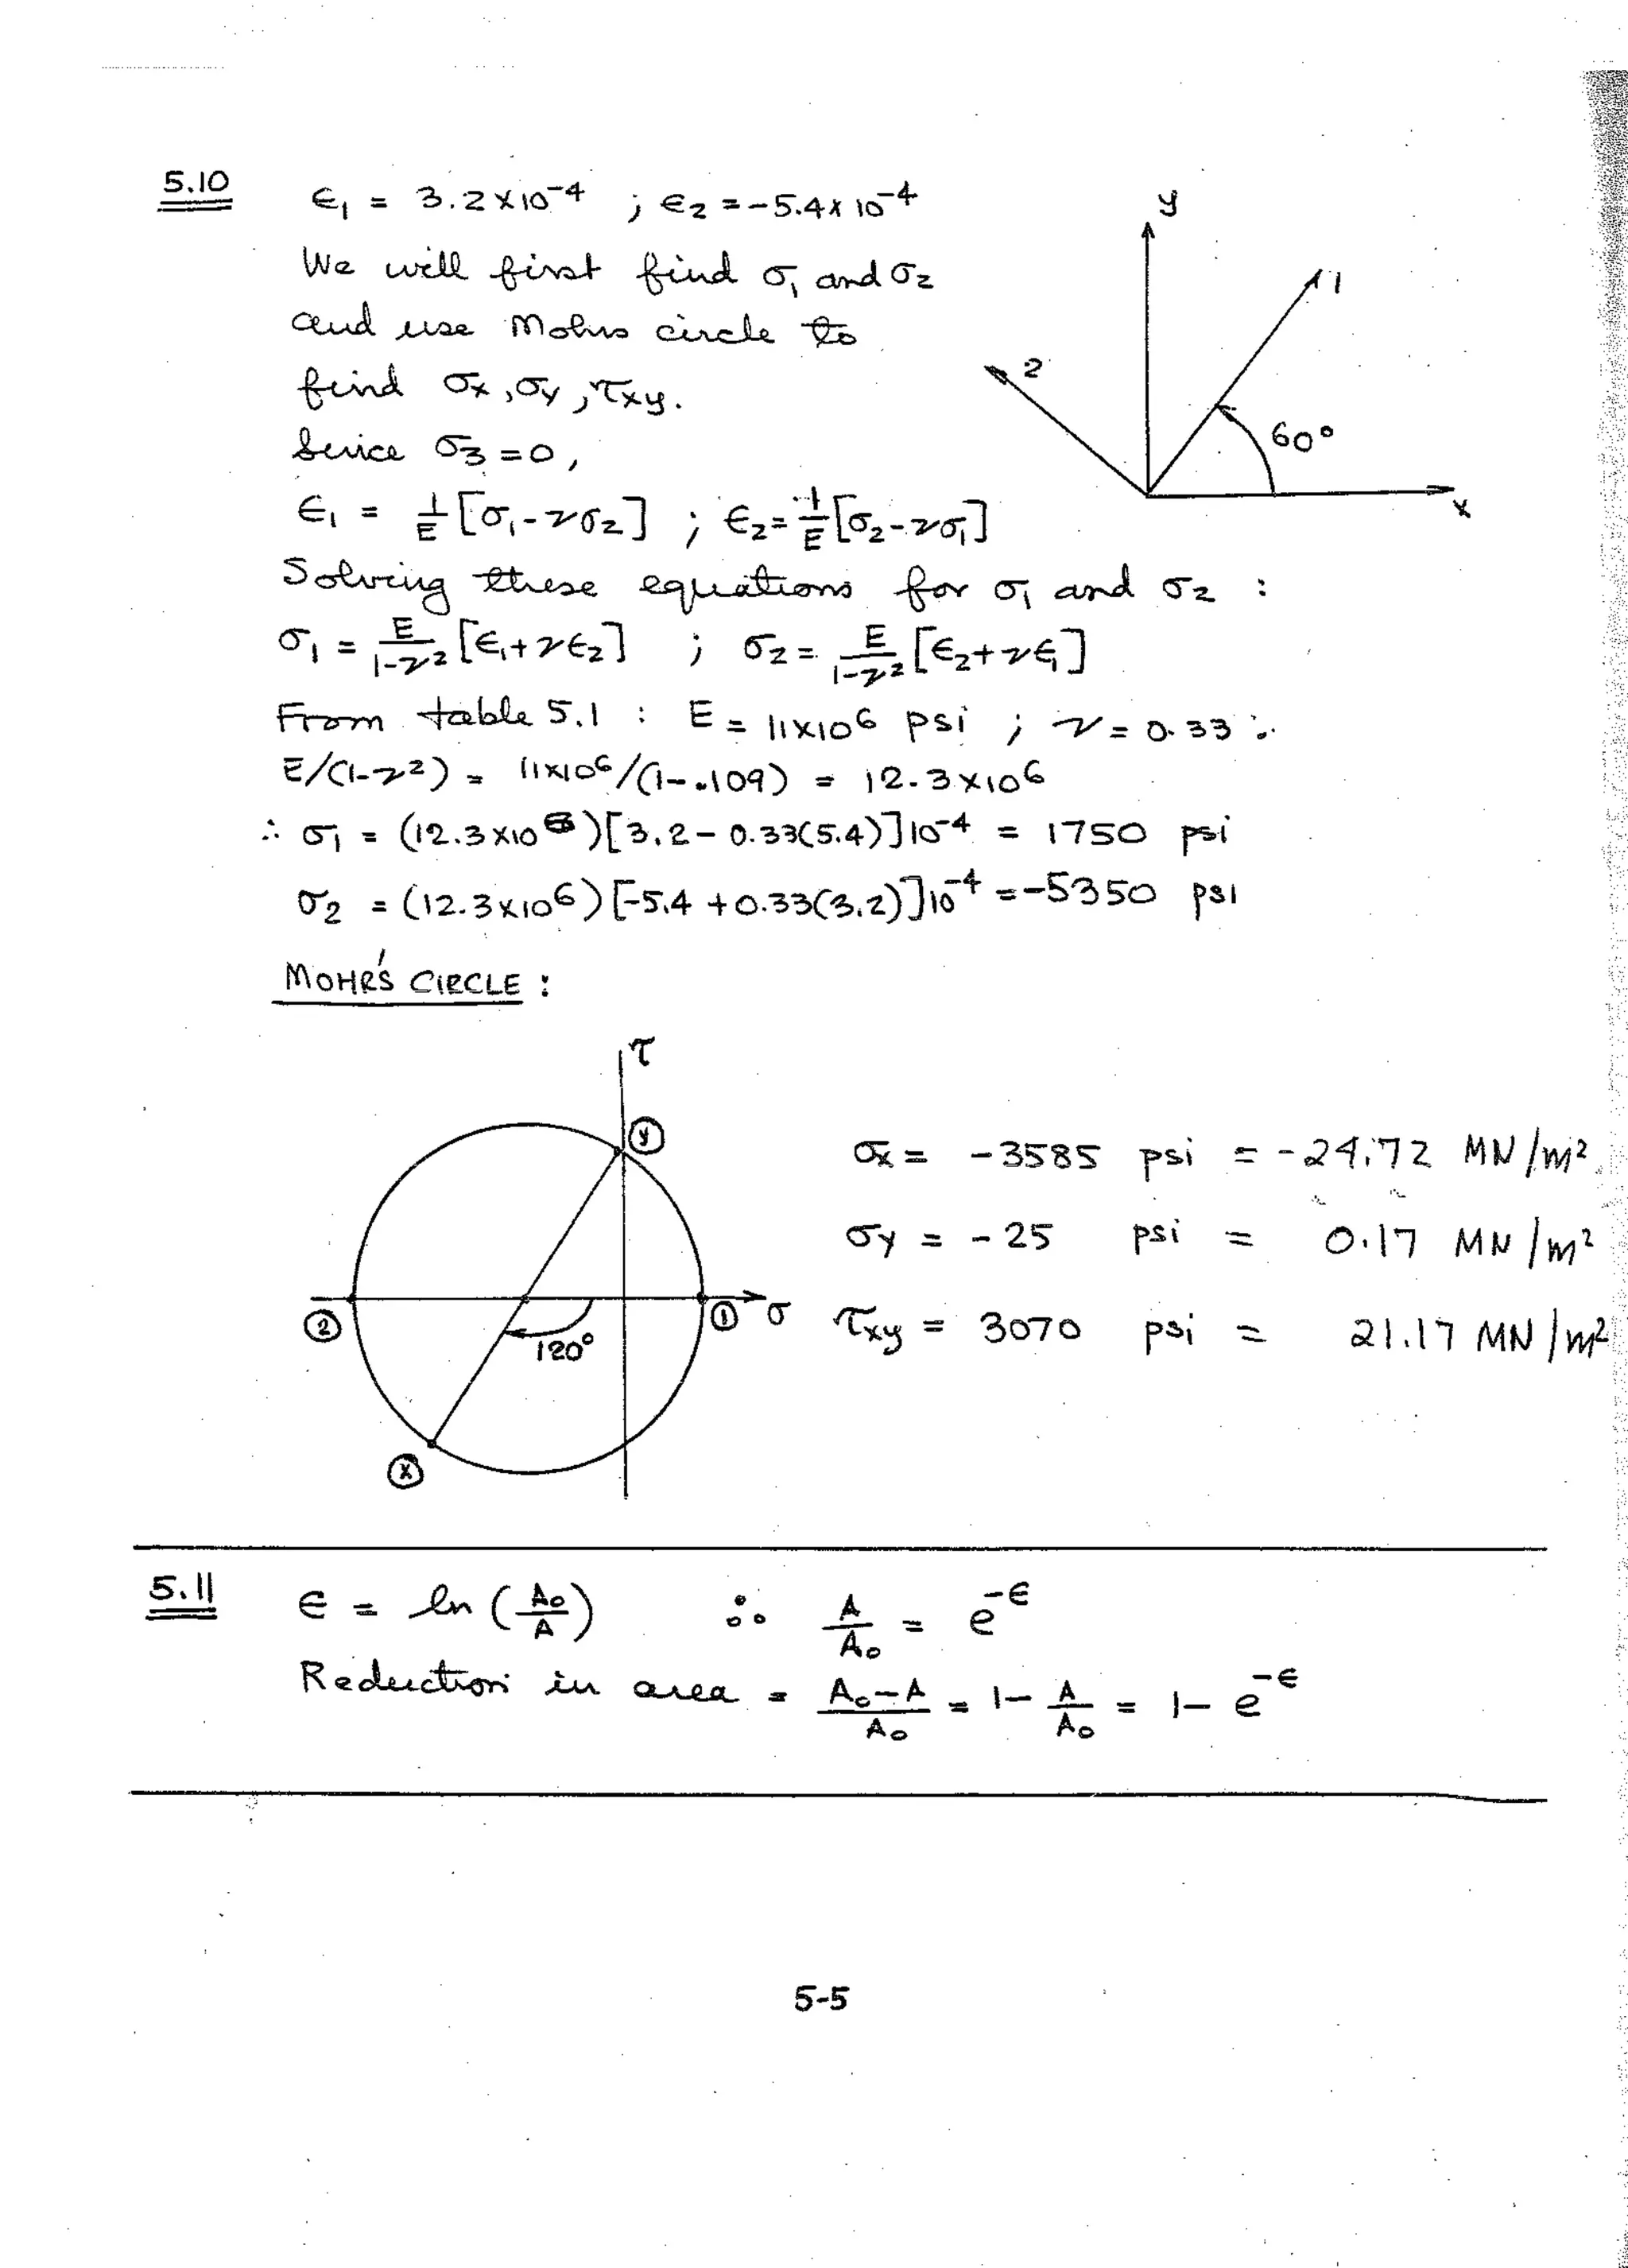 5.10 ϵ₁ = 3.2×10⁻⁴ ; ϵ₂ = -5.4×10⁻⁴
We will first find σ₁ and σ₂
and use Mohrs circle to
find σx, σy, τxy.
Since σ₃ = 0,
ϵ₁ = 1/E [σ₁ - νσ₂] ; ϵ₂ = 1/E [σ₂ - νσ₁]
Solving these equations for σ₁ and σ₂ :
σ₁ = E/(1-ν²) [ϵ₁ + νϵ₂] ; σ₂ = E/(1-ν²) [ϵ₂ + νϵ₁]
From table 5.1 : E = 11×10⁶ psi ; ν = 0.33 ∴
E/(1-ν²) = 11×10⁶/(1-.109) = 12.3×10⁶
∴ σ₁ = (12.3×10⁶)[3.2 - 0.33(5.4)]10⁻⁴ = 1750 psi
σ₂ = (12.3×10⁶)[-5.4 + 0.33(3.2)]10⁻⁴ = -5350 psi
y
1
2
60°
x
MOHR'S CIRCLE :
τ
y
2
120°
1
σ
x
σx = -3585 psi = -24.72 MN/m²
σy = -25 psi = 0.17 MN/m²
τxy = 3070 psi = 21.17 MN/m²
5.11 ϵ = ln (A₀/A) ∴ A/A₀ = e^-ϵ
Reduction in area = (A₀-A)/A₀ = 1 - A/A₀ = 1 - e^-ϵ
5-5